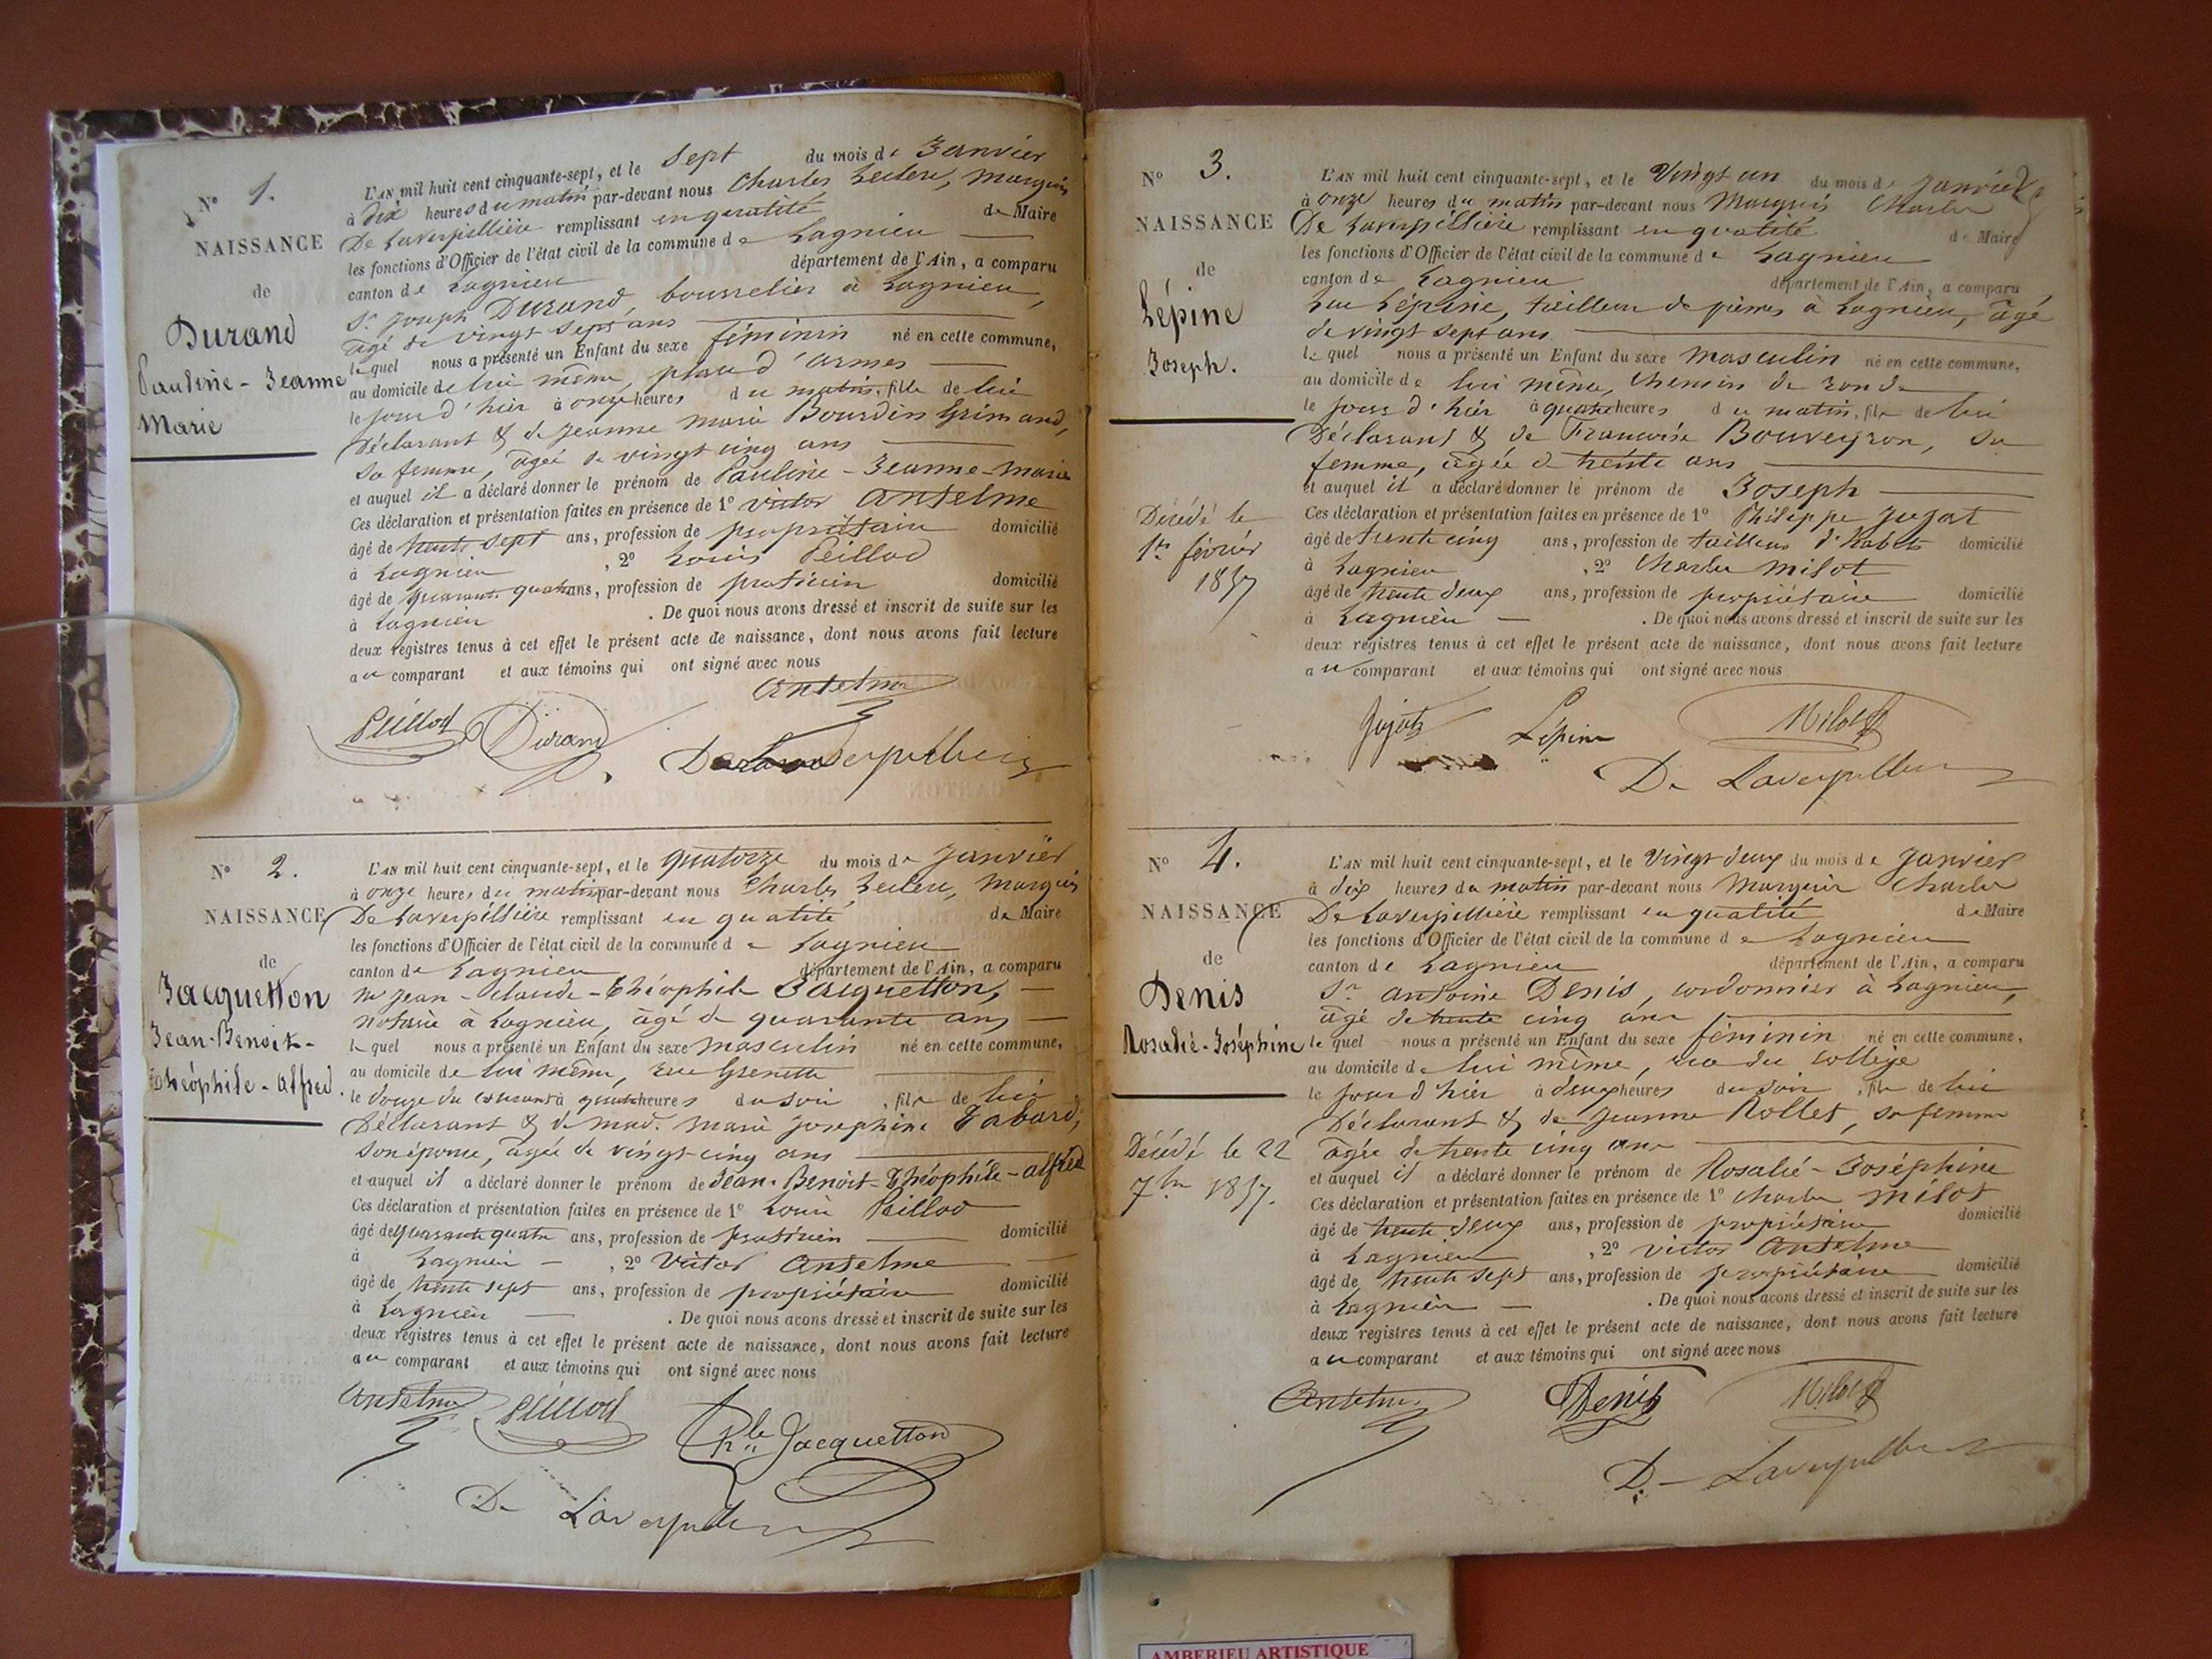 N° 1.
NAISSANCE
de
Durand
Pauline - Jeanne
Marie
L'AN mil huit cent cinquante-sept, et le sept du mois de Janvier
à dix heures du matin par-devant nous Charles Leclerc, Marquis
De Laverpillière remplissant en qualité de Maire
les fonctions d'Officier de l'état civil de la commune de Lagnieu
canton de Lagnieu département de l'Ain, a comparu
Sr. Joseph Durand, bourrelier à Lagnieu,
âgé de vingt sept ans
lequel nous a présenté un Enfant du sexe féminin né en cette commune,
au domicile de lui même, place d'armes
le jour d'hier à onze heures du matin, fille de lui
Déclarant & de Jeanne Marie Bourdin Grimaud,
sa femme, âgée de vingt cinq ans
et auquel il a déclaré donner le prénom de Pauline - Jeanne - Marie
Ces déclaration et présentation faites en présence de 1° Victor Anselme
âgé de trente sept ans, profession de propriétaire domicilié
à Lagnieu , 2° Louis Peillod
âgé de quarante quatre ans, profession de praticien domicilié
à Lagnieu . De quoi nous avons dressé et inscrit de suite sur les
deux registres tenus à cet effet le présent acte de naissance, dont nous avons fait lecture
au comparant et aux témoins qui ont signé avec nous
Anselme
Peillod Durand
N° 2.
NAISSANCE
de
Jacquetton
Jean-Benoit-
Théophile - Alfred.
L'AN mil huit cent cinquante-sept, et le quatorze du mois de Janvier
à onze heures du matin par-devant nous Charles Leclerc, Marquis
De Laverpillière remplissant en qualité de Maire
les fonctions d'Officier de l'état civil de la commune de Lagnieu
canton de Lagnieu département de l'Ain, a comparu
Mr Jean - Claude - Théophile Jacquetton,
notaire à Lagnieu, âgé de quarante ans
lequel nous a présenté un Enfant du sexe masculin né en cette commune,
au domicile de lui même, rue Grenette
le douze du courant à quatre heures du soir , fils de lui
Déclarant & de Mad. Marie Josephine Tabard,
son épouse, âgée de vingt-cinq ans
et auquel il a déclaré donner le prénom de Jean - Benoit - Théophile - Alfred
Ces déclaration et présentation faites en présence de 1° Louis Peillod
âgé de quarante quatre ans, profession de praticien domicilié
à Lagnieu , 2° Victor Anselme
âgé de trente sept ans, profession de propriétaire domicilié
à Lagnieu . De quoi nous avons dressé et inscrit de suite sur les
deux registres tenus à cet effet le présent acte de naissance, dont nous avons fait lecture
au comparant et aux témoins qui ont signé avec nous
Anselme Peillod Jacquetton
De Laverpillière
N° 3.
NAISSANCE
de
Lépine
Joseph.
Décédé le
1er février
1857
L'AN mil huit cent cinquante-sept, et le vingt un du mois de Janvier
à onze heures du matin par-devant nous Marquis Charles
De Laverpillière remplissant en qualité de Maire
les fonctions d'Officier de l'état civil de la commune de Lagnieu
canton de Lagnieu département de l'Ain, a comparu
Luc Lépine, tailleur de pierres à Lagnieu, âgé
de vingt sept ans
lequel nous a présenté un Enfant du sexe masculin né en cette commune,
au domicile de lui même, chemin de ronde
le jour d'hier à quatre heures du matin, fils de lui
Déclarant & de Francoise Bouveyron, sa
femme, âgée de trente ans
et auquel il a déclaré donner le prénom de Joseph
Ces déclaration et présentation faites en présence de 1° Philippe Jujat
âgé de trente cinq ans, profession de tailleur d'habits domicilié
à Lagnieu , 2° Charles Milot
âgé de trente deux ans, profession de propriétaire domicilié
à Lagnieu . De quoi nous avons dressé et inscrit de suite sur les
deux registres tenus à cet effet le présent acte de naissance, dont nous avons fait lecture
au comparant et aux témoins qui ont signé avec nous
Lépine Milot
De Laverpillière
N° 4.
NAISSANCE
de
Denis
Rosalie - Joséphine
Décédé le 22
7bre 1857.
L'AN mil huit cent cinquante-sept, et le vingt deux du mois de Janvier
à dix heures du matin par-devant nous Marquis Charles
De Laverpillière remplissant en qualité de Maire
les fonctions d'Officier de l'état civil de la commune de Lagnieu
canton de Lagnieu département de l'Ain, a comparu
Sr Antoine Denis, cordonnier à Lagnieu,
âgé de trente cinq ans
lequel nous a présenté un Enfant du sexe féminin né en cette commune,
au domicile de lui même, rue du College
le jour d'hier à deux heures du soir , fille de lui
Déclarant & de Jeanne Rollet, sa femme
âgée de trente cinq ans
et auquel il a déclaré donner le prénom de Rosalie - Joséphine
Ces déclaration et présentation faites en présence de 1° Charles Milot
âgé de trente deux ans, profession de propriétaire domicilié
à Lagnieu , 2° Victor Anselme
âgé de trente sept ans, profession de propriétaire domicilié
à Lagnieu . De quoi nous avons dressé et inscrit de suite sur les
deux registres tenus à cet effet le présent acte de naissance, dont nous avons fait lecture
au comparant et aux témoins qui ont signé avec nous
Anselme Denis Milot
De Laverpillière
AMBERIEU ARTISTIQUE